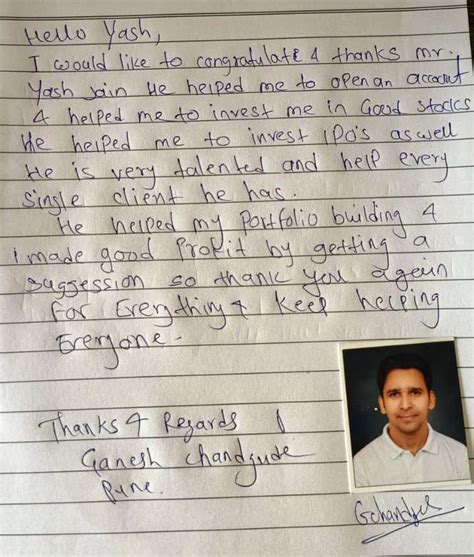 Hello Yash,
I would like to congratulate & thanks mr.
Yash Jain He helped me to open an account
& helped me to invest me in Good stocks
He helped me to invest IPO's as well
He is very talented and help every
single client he has.
He helped my Portfolio building &
i made good Profit by getting a
suggession so thank you again
For Everything & Keep helping
Everyone.
Thanks & Regards
Ganesh Chandgude
Pune.